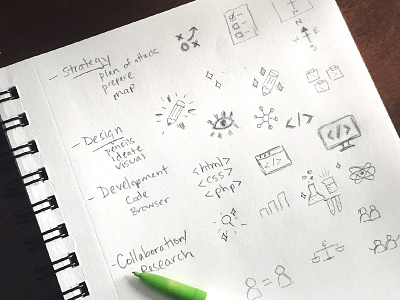 - Strategy
plan of attack
prepare
map
N
W E
S
- Design
pencils
ideate
visual
</>
</>
- Development
Code
Browser
<html>
<css>
<php>
</>
- Collaboration/
Research